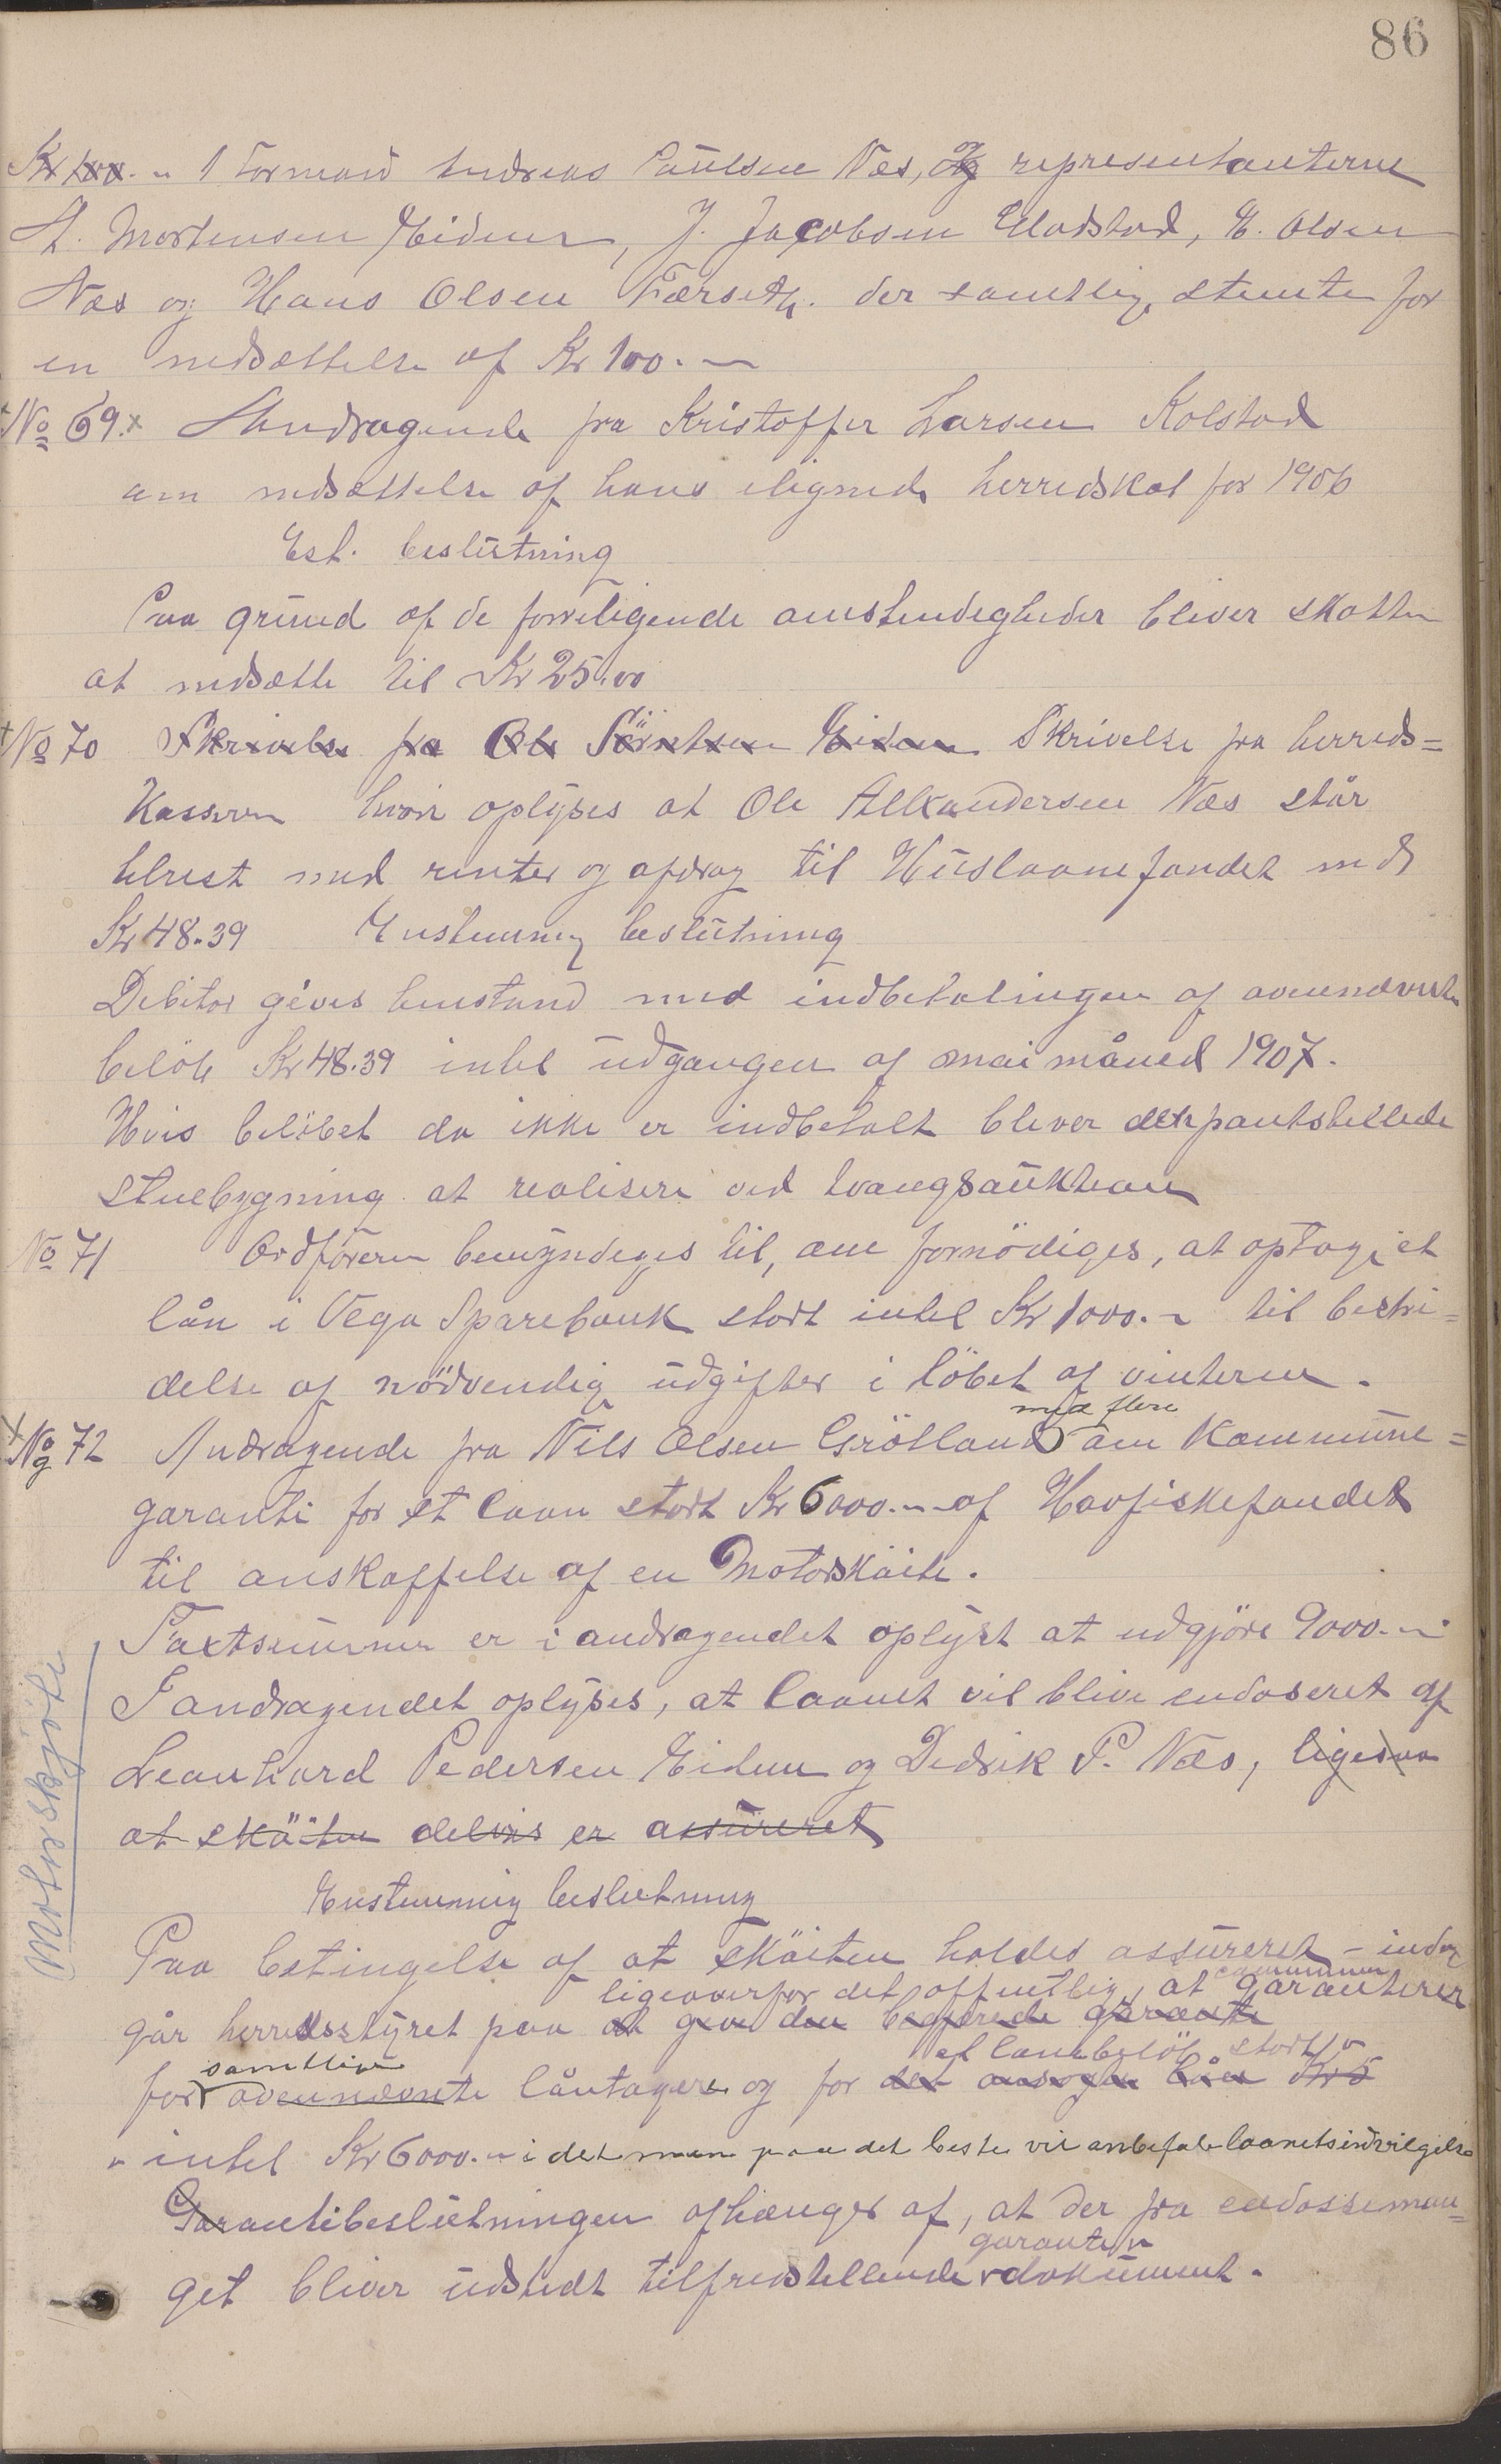 86
Kr 100.- 1 Formand Andreas Paulsen Næs, og representanterne
A. Mortensen Eidem, J. Jacobsen Gladstad, E. Olsen
Næs og Hans Olsen Færseth. der samtlig stemte for
en nedsættelse af Kr 100.-
No 69. x Andragende fra Kristoffer Larsen Kolstad
om nedsættelse af hans ilignede herredskat for 1906
Est. beslutning
Paa grund af de forreligende omstendigheder bliver skatten
at nedsætte til Kr 25.00
No 70 Skrivelse fra Ole Eidem Skrivelse fra herreds=
Kasseren hvori oplyses at Ole Alexandersen Næs står
tilrest med renter og afdrag til Huslaanefondet med
Kr 48.39 Enstemmig beslutning
Debitor gives henstand med indbetalingen af ovennævnte
beløb Kr 48.39 intil udgangen af mai måned 1907.
Hvis beløbet da ikke er indbetalt bliver den pantstillede
stuebygning at realisere ved tvangsauktion
No 71 Ordføreren bemyndiges til, om fornødiges, at optage et
lån i Vega Sparebank stort intil Kr 1000.- til bestri=
delse af nödvendig udgifter i löbet af vinteren.
med flere
No 72 Andragende fra Nils Olsen Grötland om Kommune=
garanti for et laan stort Kr 6000.-- af Havfiskefondet
til anskaffelse af en Motorskøite.
Taxtsummen er i andragendet oplyst at udgjöre 9000.-
I andragendet oplyses, at laanet vil blive endoseret af
Leonhard Pedersen Eidem og Dedrik P. Næs, ligesaa
at skøiten delvis er assureret
Motorskjøite
Enstemmig beslutning
Paa betingelse af at skøiten holdes assureret - indgår
ligeoverfor det offentlig, at communen garanterer
går herredsstyret paa at give den begjærede garanti
samtlige et lånebeløb stort
for ovennævnte låntagere og for det ansøgte lån Kr 6
intil Kr 6000.- i det man paa det beste vil anbefale laanets indvilgelse
Garantibeslutningen afhænger af, at der fra endossemen=
garanti
get bliver udstedt tilfredstillende dokument.